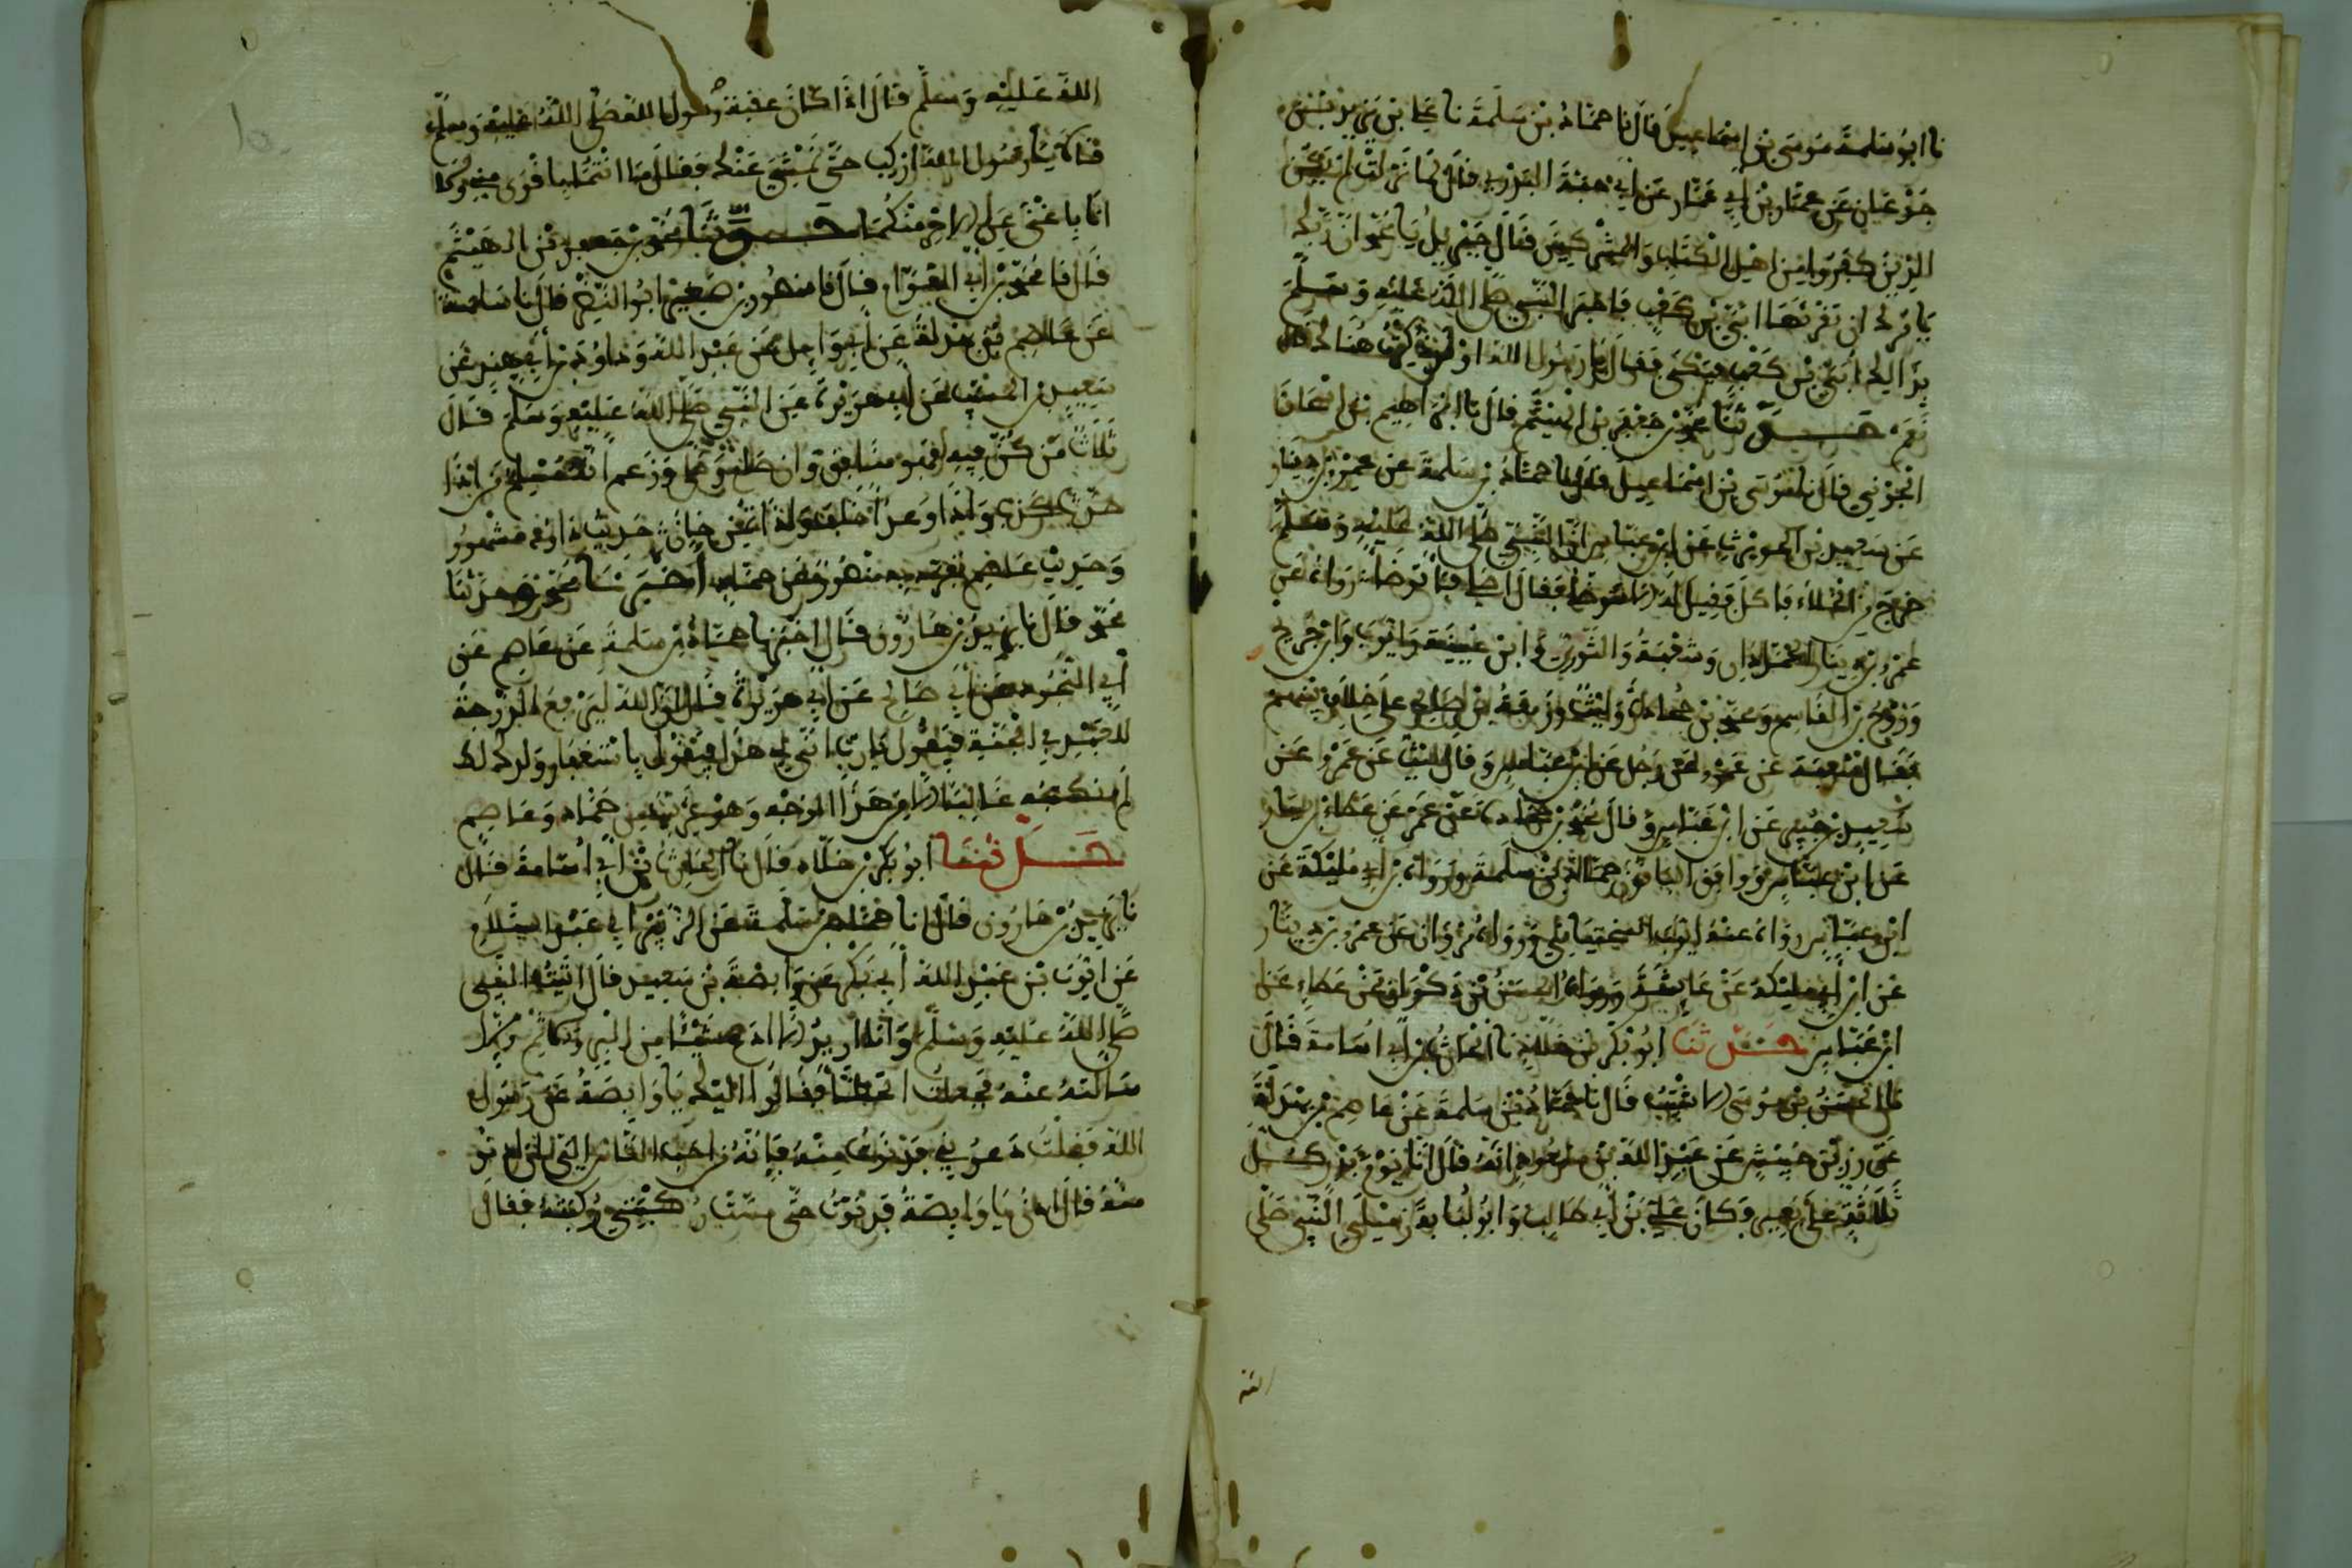 نا ابو سلمة موسى بن اسماعيل قال نا حماد بن سلمة نا علي بن زيد بن
جدعان عن عمار بن ابي عمار عن ابي حبة البدري قال لما نزلت لم يكن
الذين كفروا من اهل الكتاب والمشركين قال جبريل يا محمد ان ربك
يامرك ان تقرئها ابي بن كعب فاخبر النبي صلى الله عليه وسلم
بذالك ابي بن كعب فبكى فقال يا رسول الله او ذكرت هناك قال
نعم حدثنا محمد بن جعفر بن الهيثم قال نا ابراهيم بن اسحاق
الحربي قال نا موسى بن اسماعيل قال نا حماد بن سلمة عن عمرو بن دينار
عن سعيد بن الحويرث عن ابن عباس ان النبي صلى الله عليه وسلم
خرج من الخلاء فاكل فقيل له الا توضا فقال اصلي فاتوضا رواه عن
عمرو بن دينار الحمادان وشعبة والثوري وابن عيينة وايوب وابن جريج
وروح بن القاسم ومحمد بن جحادة وليث وزمعة بن صالح على خلاف بينهم
فقال شعبة عن عمرو عن رجل عن ابن عباس وقال ليث عن عمرو عن
سعيد بن جبير عن ابن عباس وقال محمد بن جحادة عن عمرو عن عطاء بن يسار
عن ابن عباس ووافق الباقون حماد بن سلمة ورواه بن ابي مليكة عن
ابن عباس رواه عنه ايوب السختياني ورواه مروان عن عمرو بن دينار
عن ابن ابي مليكة عن عايشة ورواه الحسن بن ذكوان عن عطاء عن
ابن عباس حدثنا ابو بكر بن خلاد نا الحارث بن ابي اسامة قال
نا الحسن بن موسى الاشيب قال نا حماد بن سلمة عن عاصم بن بهدلة
عن زر بن حبيش عن عبد الله بن مسعود انه قال انا يوم بدر كل
ثلاثة على بعير وكان علي بن ابي طالب وابو لبابة زميلي النبي صلى
الله
الله عليه وسلم قال اذا كان عقبة رسول الله صلى الله عليه وسلم
قالا يا رسول الله اركب حتى نمشي عنك فقال ما انتما باقوى مني وما
انا باغنى عن الاجر منكما حدثنا محمد بن جعفر بن الهيثم
قال نا محمد بن ابي العوام قال نا منصور بن صقير ابو النضر قال نا حماد بن سلمة
عن عاصم بن بهدلة عن ابي وايل عن عبد الله وداود بن ابي هند عن
سعيد بن المسيب عن ابي هريرة عن النبي صلى الله عليه وسلم قال
ثلاث من كن فيه فهو منافق وان صلى وصام وزعم انه مسلم من اذا
حدث كذب واذا وعد اخلف واذا اتمن خان حديث داود مشهور
وحديث عاصم تفرد به منصور عن حماد اخبرنا محمد
محمد قال نا يزيد بن هارون قال اخبرنا حماد بن سلمة عن عاصم عن
ابي النجود عن ابي صالح عن ابي هريرة قال ان الله ليرفع الدرجة
للعبد في الجنة فيقول يا رب انى لي هذا فيقول باستغفار ولدك لك
لم نكتبه عاليا الا من هذا الوجه وهو غريب من حماد وعاصم
حدثنا ابو بكر بن خلاد قال نا الحارث بن ابي اسامة قال
نا يزيد بن هارون قال انا حماد بن سلمة عن الزبير ابي عبد السلام
عن ايوب بن عبد الله ابي بكر عن وابصة بن معبد قال اتيت النبي
صلى الله عليه وسلم وانا اريد الا ادع شيئا من البر والاثم الا
سالته عنه فجعلت اتخطا فقالوا اليك يا وابصة عن رسول
الله فقلت دعوني فدنوت منه فانه من احب الناس الي ان ادنو
منه قال ادن يا وابصة فدنوت حتى مست ركبتي ركبته فقال